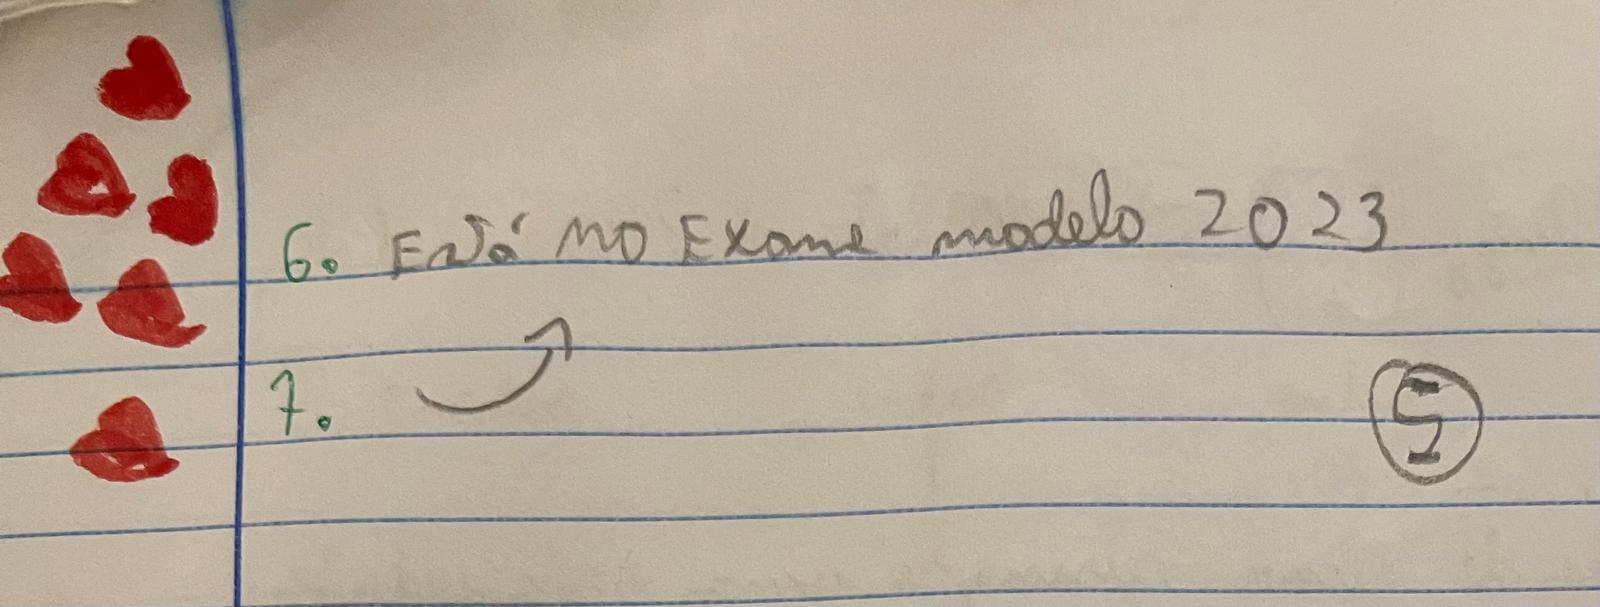 6. Está no Exame modelo 2023
7.
5